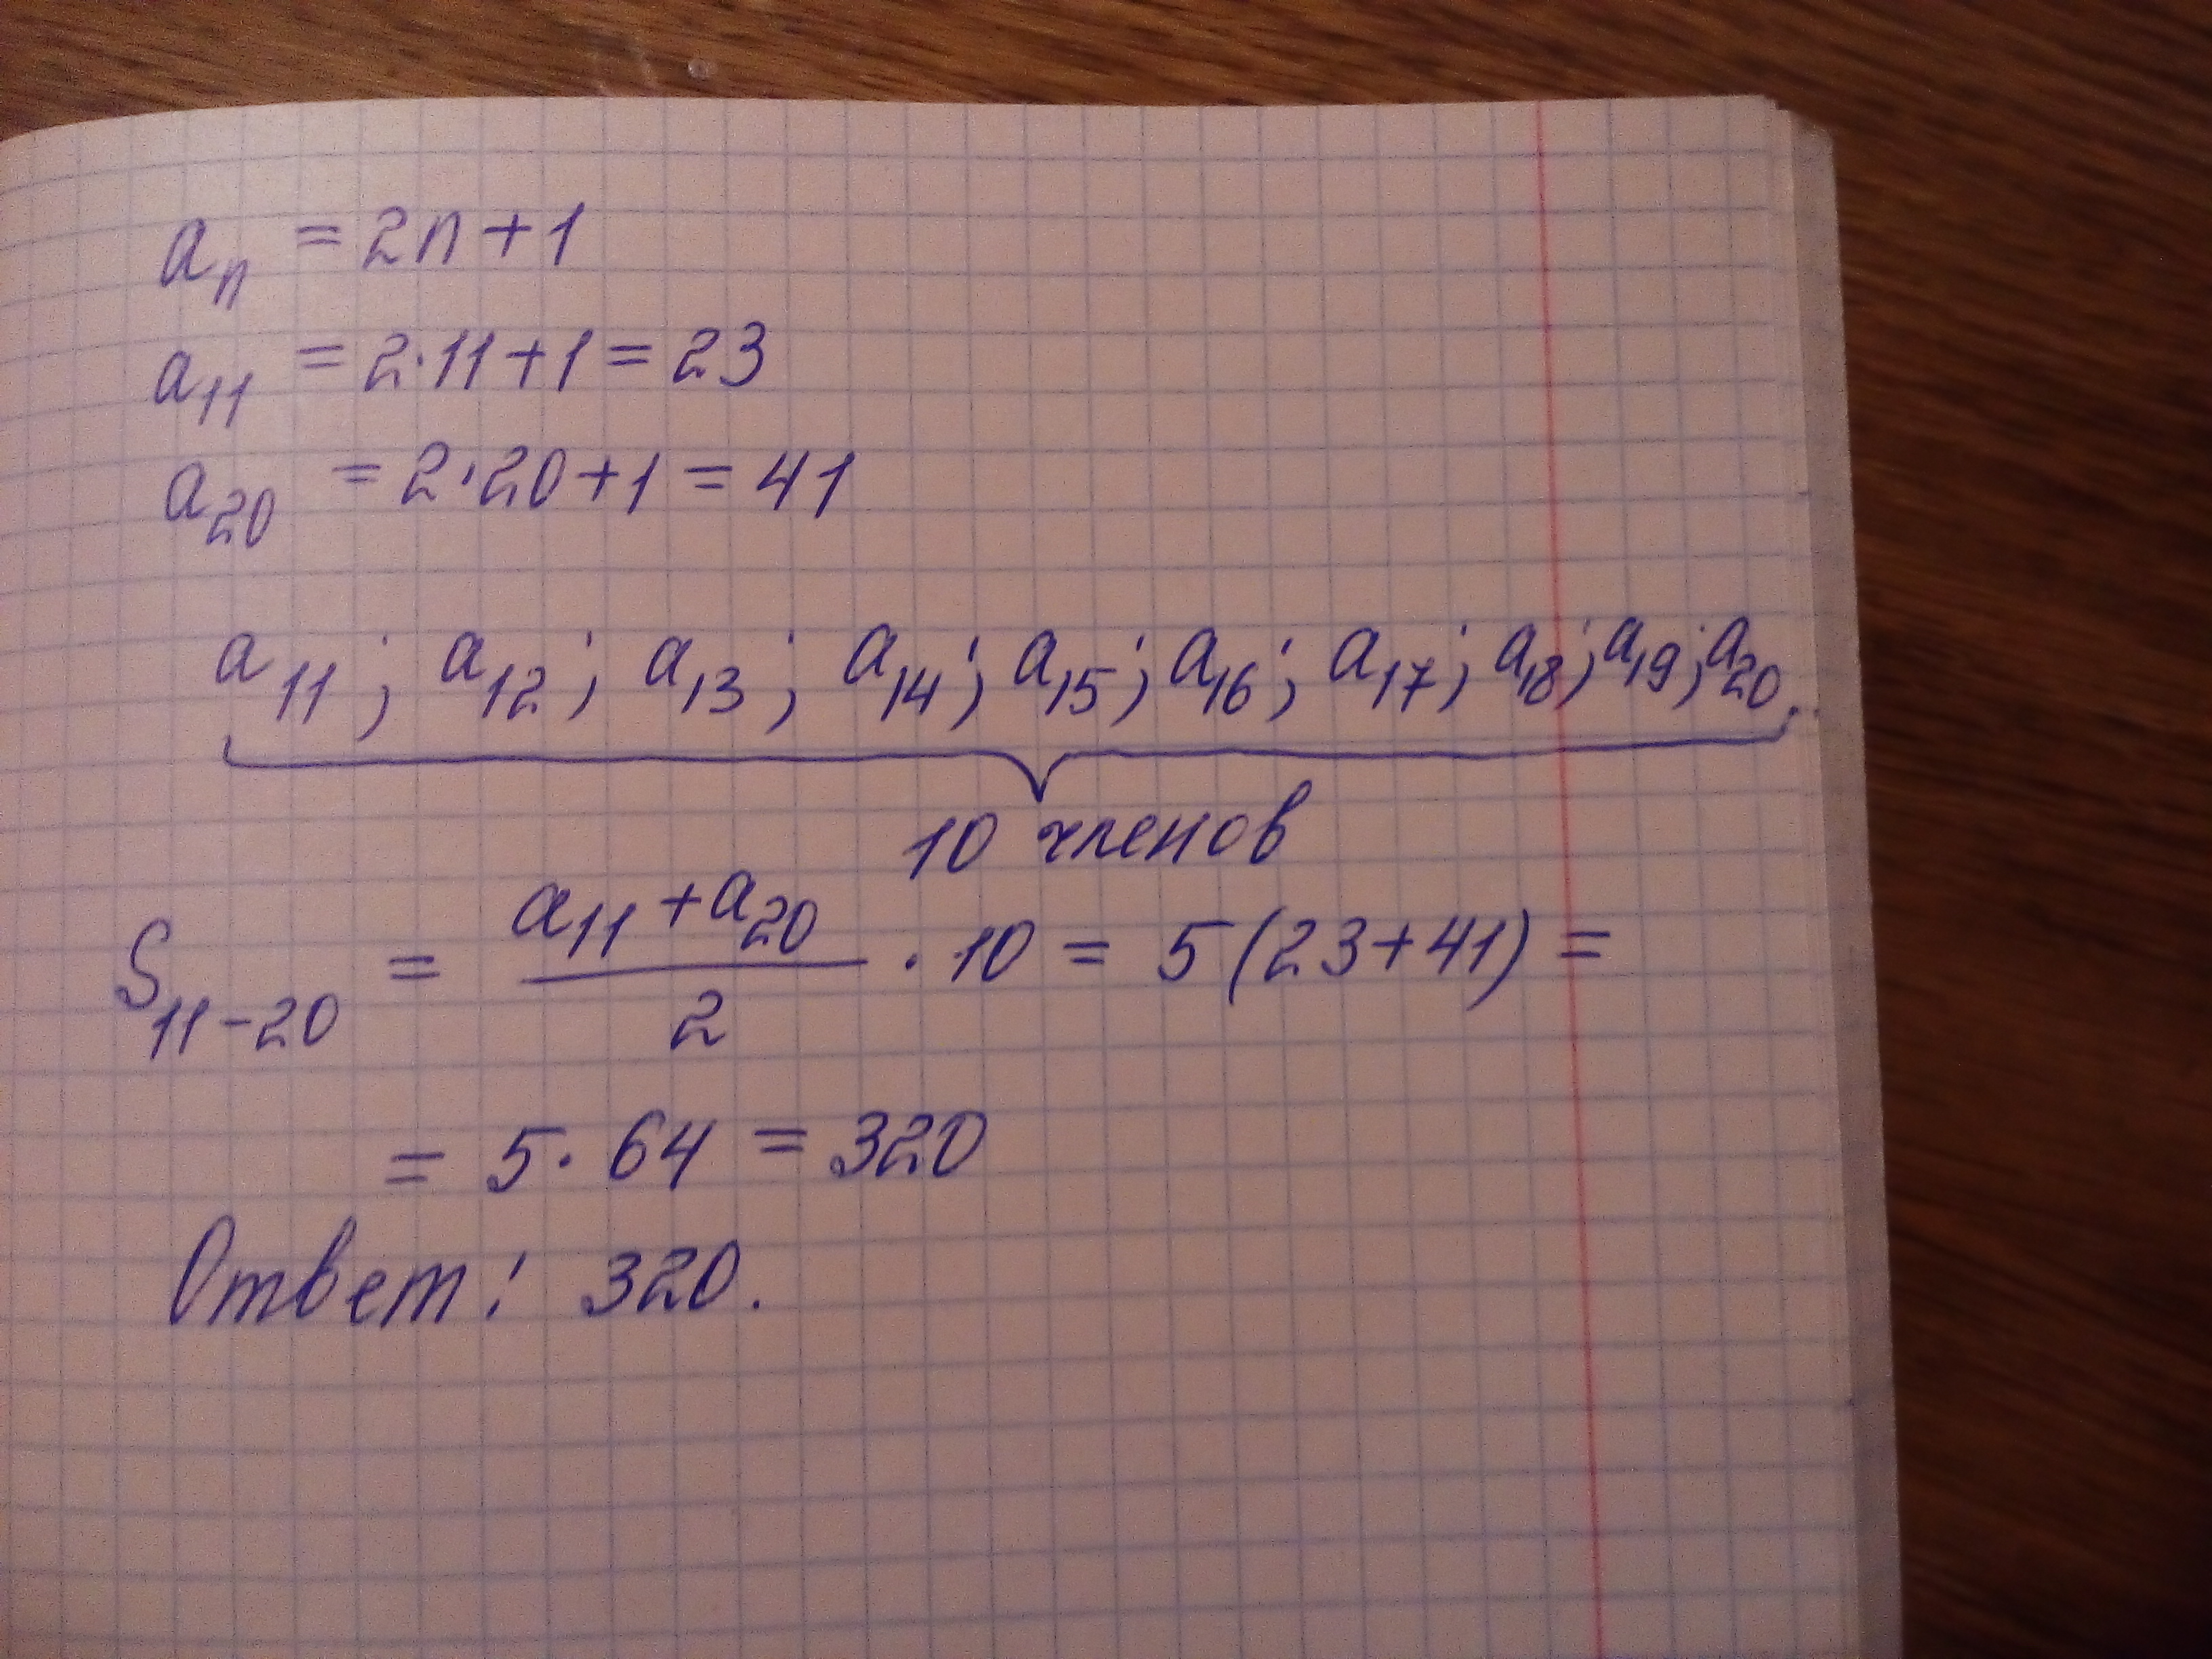 aₙ = 2n + 1
a₁₁ = 2·11 + 1 = 23
a₂₀ = 2·20 + 1 = 41
a₁₁; a₁₂; a₁₃; a₁₄; a₁₅; a₁₆; a₁₇; a₁₈; a₁₉; a₂₀.
10 членов
S₁₁₋₂₀ = (a₁₁ + a₂₀)/2 · 10 = 5(23+41) =
= 5 · 64 = 320
Ответ: 320.